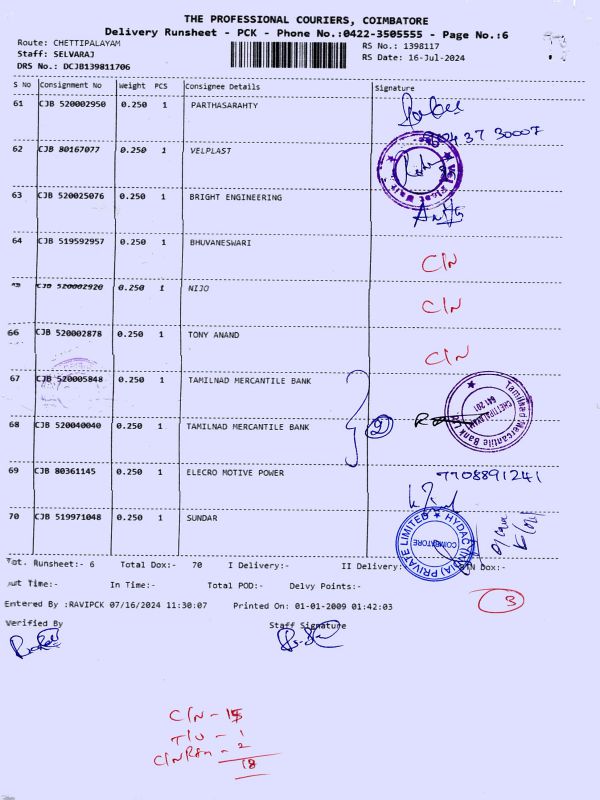 THE PROFESSIONAL COURIERS, COIMBATORE
Delivery Runsheet - PCK - Phone No.:0422-3505555 - Page No.:6
Route: CHETTIPALAYAM
RS No.: 1398117
Staff: SELVARAJ
RS Date: 16-Jul-2024
DRS No.: DCJB139811706
S No Consignment No Weight PCS Consignee Details Signature
61 CJB 520002950 0.250 1 PARTHASARAHTY
62 CJB 80167077 0.250 1 VELPLAST
63 CJB 520025076 0.250 1 BRIGHT ENGINEERING
64 CJB 519592957 0.250 1 BHUVANESWARI C/N
CJB 520002920 0.250 1 NIJO C/N
66 CJB 520002878 0.250 1 TONY ANAND C/N
67 CJB 520005848 0.250 1 TAMILNAD MERCANTILE BANK
Tamilnad Mercantile Bank
CHETTIPALAYAM
641 201
68 CJB 520040040 0.250 1 TAMILNAD MERCANTILE BANK 2
69 CJB 80361145 0.250 1 ELECRO MOTIVE POWER 7708891241
70 CJB 519971048 0.250 1 SUNDAR
HYDAC (INDIA) PRIVATE LIMITED
COIMBATORE
Tot. Runsheet:- 6 Total Dox:- 70 I Delivery:- II Delivery: Dox:-
Out Time:- In Time:- Total POD:- Delvy Points:-
Entered By :RAVIPCK 07/16/2024 11:30:07 Printed On: 01-01-2009 01:42:03
3
Verified By Staff Signature
C/N - 15
T/U - 1
C/N Rtn - 2
18